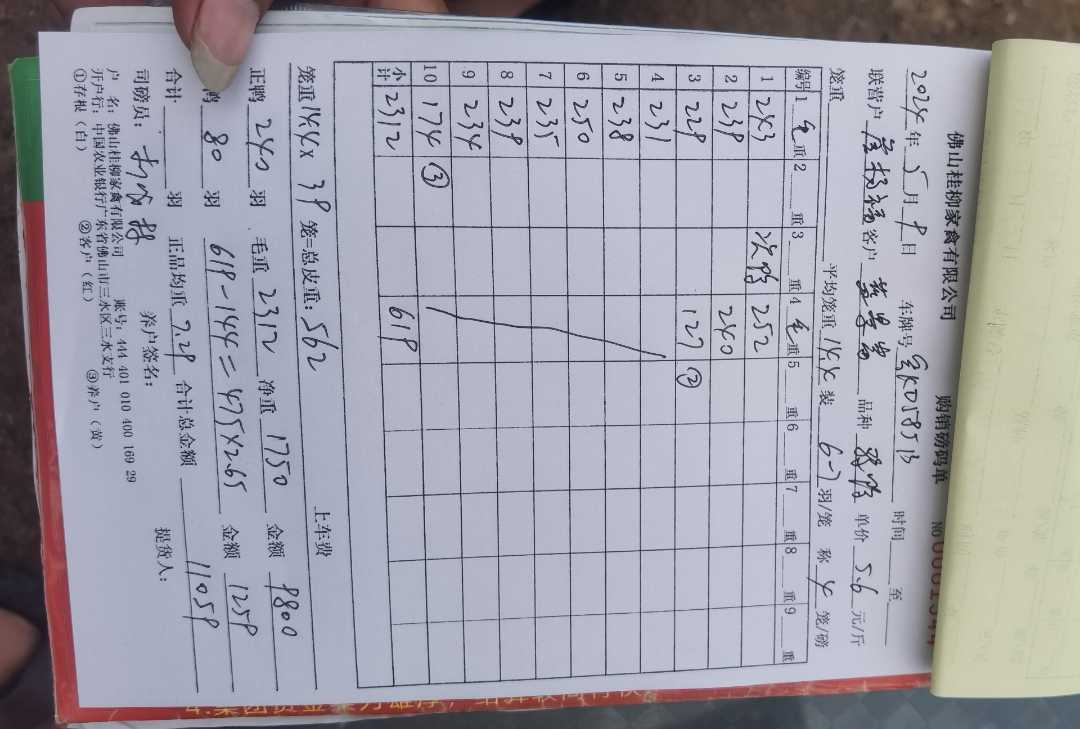 佛山桂柳家禽有限公司 购销磅码单 NO
2024年5月9日 车牌号 时间 至
联营户 客户 品种 单价 5.6 元/斤
笼重 平均笼重 14.4 装 6-7 羽/笼 称 4 笼/磅
编号 1 毛 重 2 重 3 重 4 毛 重 5 重 6 重 7 重 8 重 9 重
1 243 次鸭 252
2 239 240
3 229 127 ②
4 231
5 238
6 250
7 235
8 239
9 234
10 174 ③
小计 2312 619
笼重 14.4 x 39 笼=总皮重: 562 上车费
正鸭 240 羽 毛重 2312 净重 1750 金额 9800
鸭 80 羽 619-144=475×2.65 金额 1259
合计 羽 正品均重 7.29 合计总金额 11059
司磅员: 养户签名: 提货人:
户 名: 佛山桂柳家禽有限公司 账号: 444 401 010 400 169 29
开户行: 中国农业银行广东省佛山市三水区三水支行
①存根(白) ②客户(红) ③养户(黄)